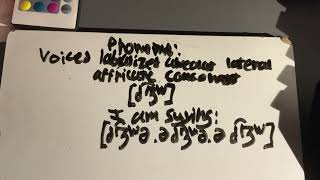 Phoneme:
Voiced labialized alveolar lateral
affricate consonant
[d͡ɮʷ]
I am saying:
[d͡ɮʷə.əd͡ɮʷə.əd͡ɮʷ]